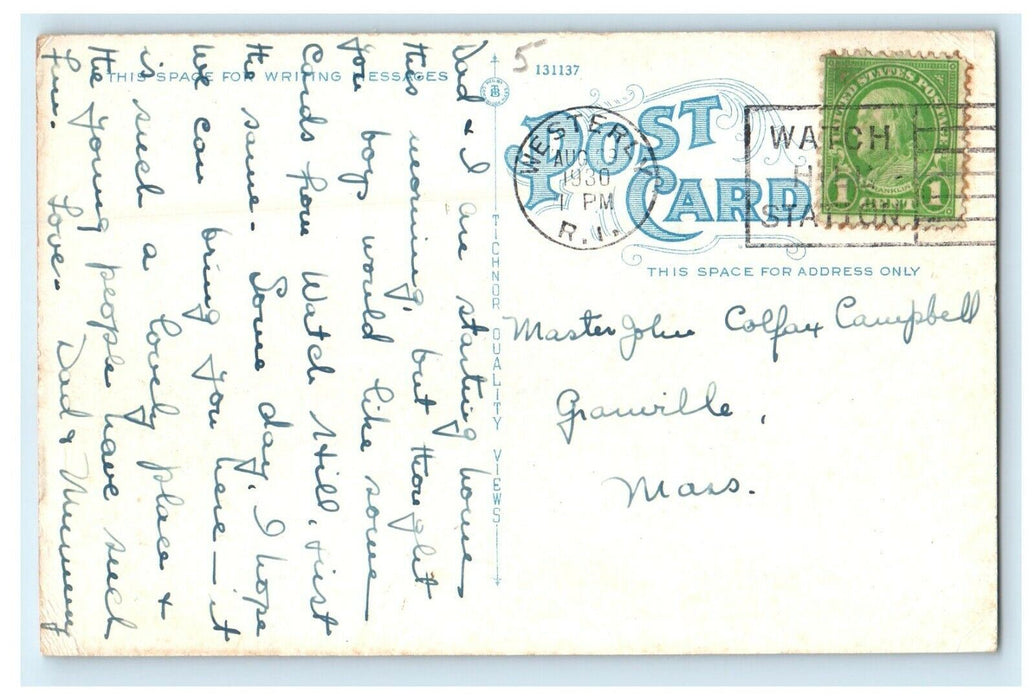 THIS SPACE FOR WRITING MESSAGES
Dad & I are starting home
this morning, but thought
you boys would like some
cards from Watch Hill, just
the same. Some day, I hope
we can bring you here - it
is such a lovely place &
the young people have such
fun. Love - Dad & Mummy
TICHNOR QUALITY VIEWS
5
131137
POST CARD
WESTERLY
AUG
1930
PM
R.I.
WATCH
HILL
STATION
UNITED STATES POSTAGE
FRANKLIN
1 CENT 1
THIS SPACE FOR ADDRESS ONLY
Master John Colfax Campbell
Granville,
Mass.